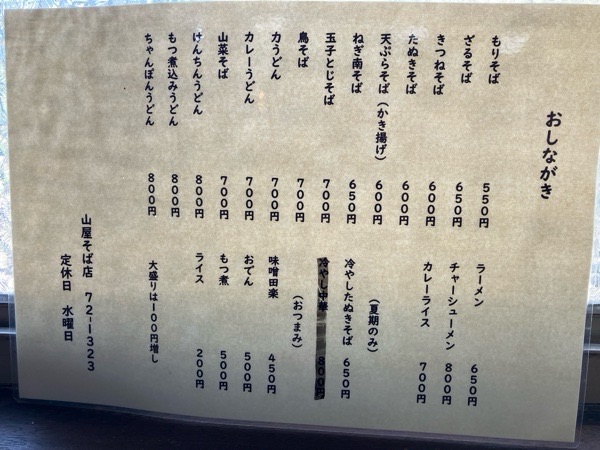 おしながき
もりそば 550円
ざるそば 650円
きつねそば 600円
たぬきそば 600円
天ぷらそば(かき揚げ) 600円
ねぎ南そば 650円
玉子とじそば 700円
鳥そば 700円
力うどん 700円
カレーうどん 700円
山菜そば 700円
けんちんうどん 800円
もつ煮込みうどん 800円
ちゃんぽんうどん 800円
ラーメン 650円
チャーシューメン 800円
カレーライス 700円
(夏期のみ)
冷やしたぬきそば 650円
冷やし中華 800円
(おつまみ)
味噌田楽 450円
おでん 500円
もつ煮 500円
ライス 200円
大盛りは100円増し
山屋そば店 72-1323
定休日 水曜日